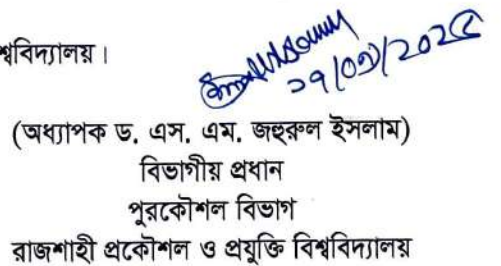 শ্ববিদ্যালয়।
(অধ্যাপক ড. এস. এম. জহুরুল ইসলাম)
বিভাগীয় প্রধান
পুরকৌশল বিভাগ
রাজশাহী প্রকৌশল ও প্রযুক্তি বিশ্ববিদ্যালয়